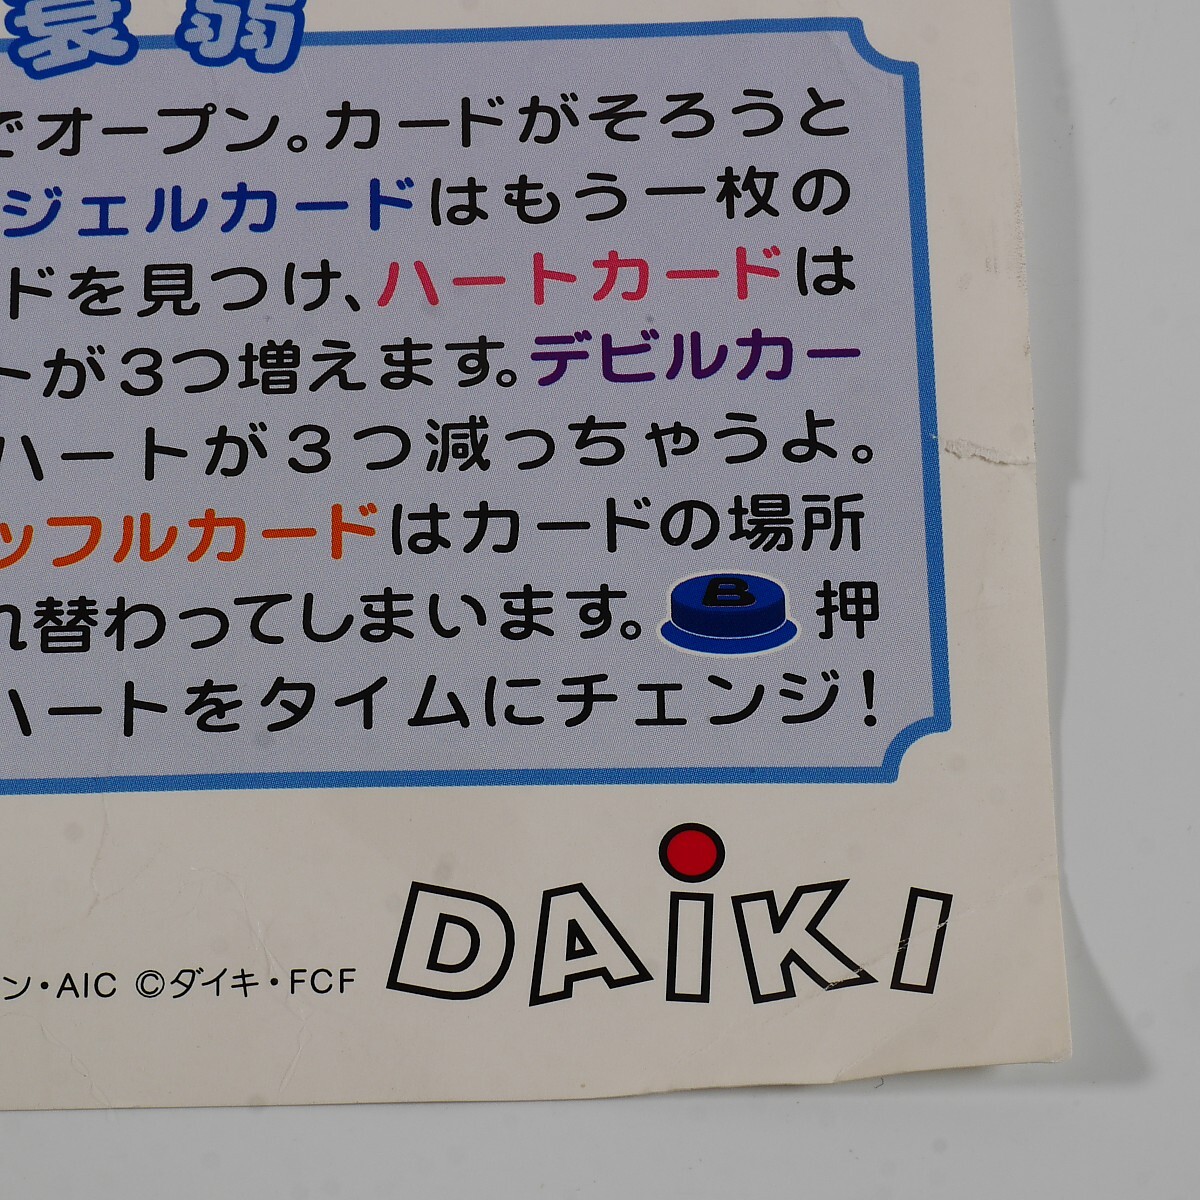 衰弱
でオープン。カードがそろうと
ジェルカードはもう一枚の
ドを見つけ、ハートカードは
トが３つ増えます。デビルカー
ハートが３つ減っちゃうよ。
ッフルカードはカードの場所
れ替わってしまいます。B押
ハートをタイムにチェンジ！
ン・AIC ©ダイキ・FCF
DAiKI